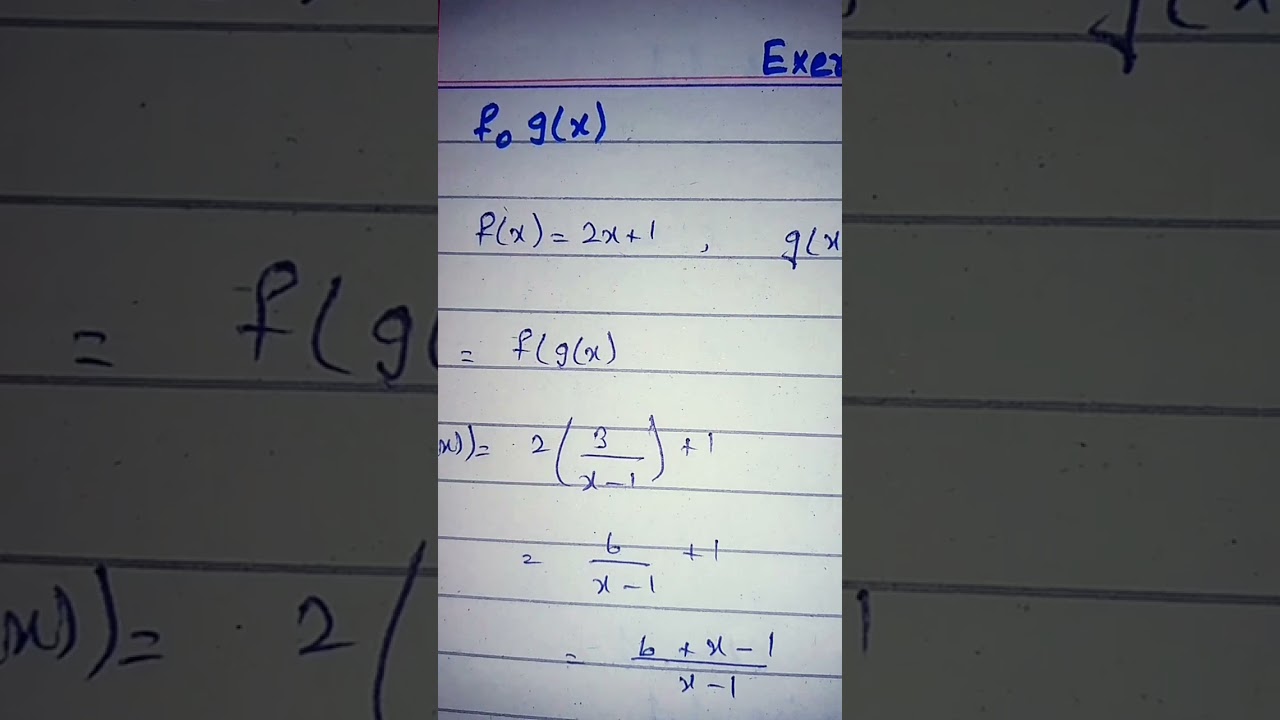 Exer
fog(x)
f(x) = 2x+1 , g(x
= f(g(x)
x)) = 2(3/(x-1)) + 1
= 6/(x-1) + 1
= (6 + x - 1)/(x-1)